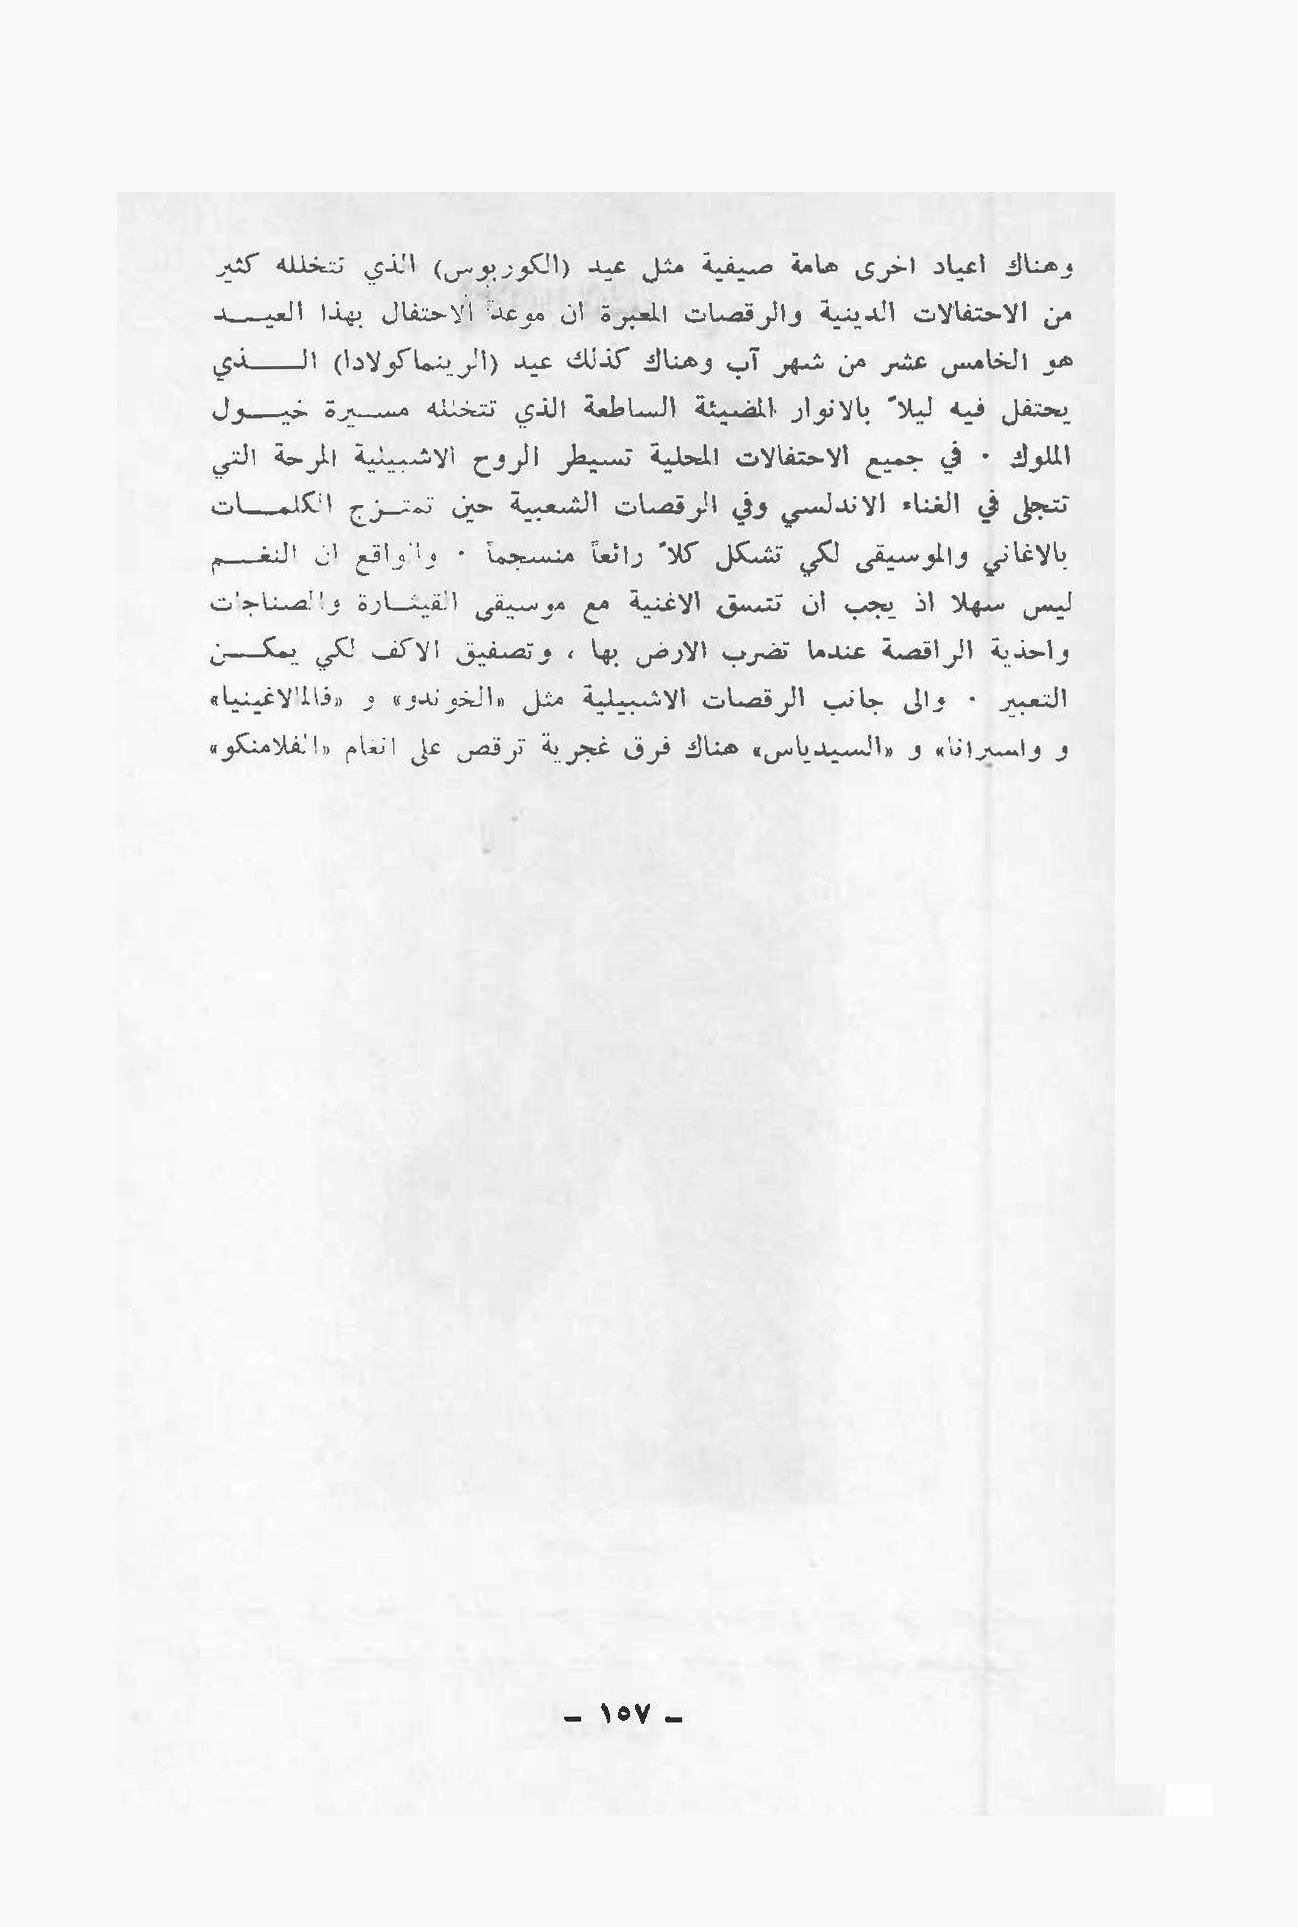 وهناك اعياد اخرى هامة صيفية مثل عيد (الكوربوس) الذي تتخلله كثير
من الاحتفالات الدينية والرقصات المعبرة ان موعد الاحتفال بهذا العيـــد
هو الخامس عشر من شهر آب وهناك كذلك عيد (الرينماكولادا) الــــذي
يحتفل فيه ليلاً بالانوار المضيئة الساطعة الذي تتخلله مسـيرة خيـــول
الملوك ٠ في جميع الاحتفالات المحلية تسيطر الروح الاشبيلية المرحة التي
تتجلى في الغناء الاندلسي وفي الرقصات الشعبية حين تمتـزج الكلمـــات
بالاغاني والموسيقى لكي تشكل كلاً رائعاً منسجماً ٠ والواقع ان النغـــم
ليس سهلا اذ يجب ان تتسق الاغنية مع موسيقى القيثـارة والصناجات
واحذية الراقصة عندما تضرب الارض بها ، وتصفيق الاكف لكي يمكـــن
التعبير ٠ والى جانب الرقصات الاشبيلية مثل «الخوندو» و «فالمالاغينيا»
و واسبرانا» و «السيدياس» هناك فرق غجرية ترقص على انغام «الفلامنكو»
ـ ١٥٧ ـ